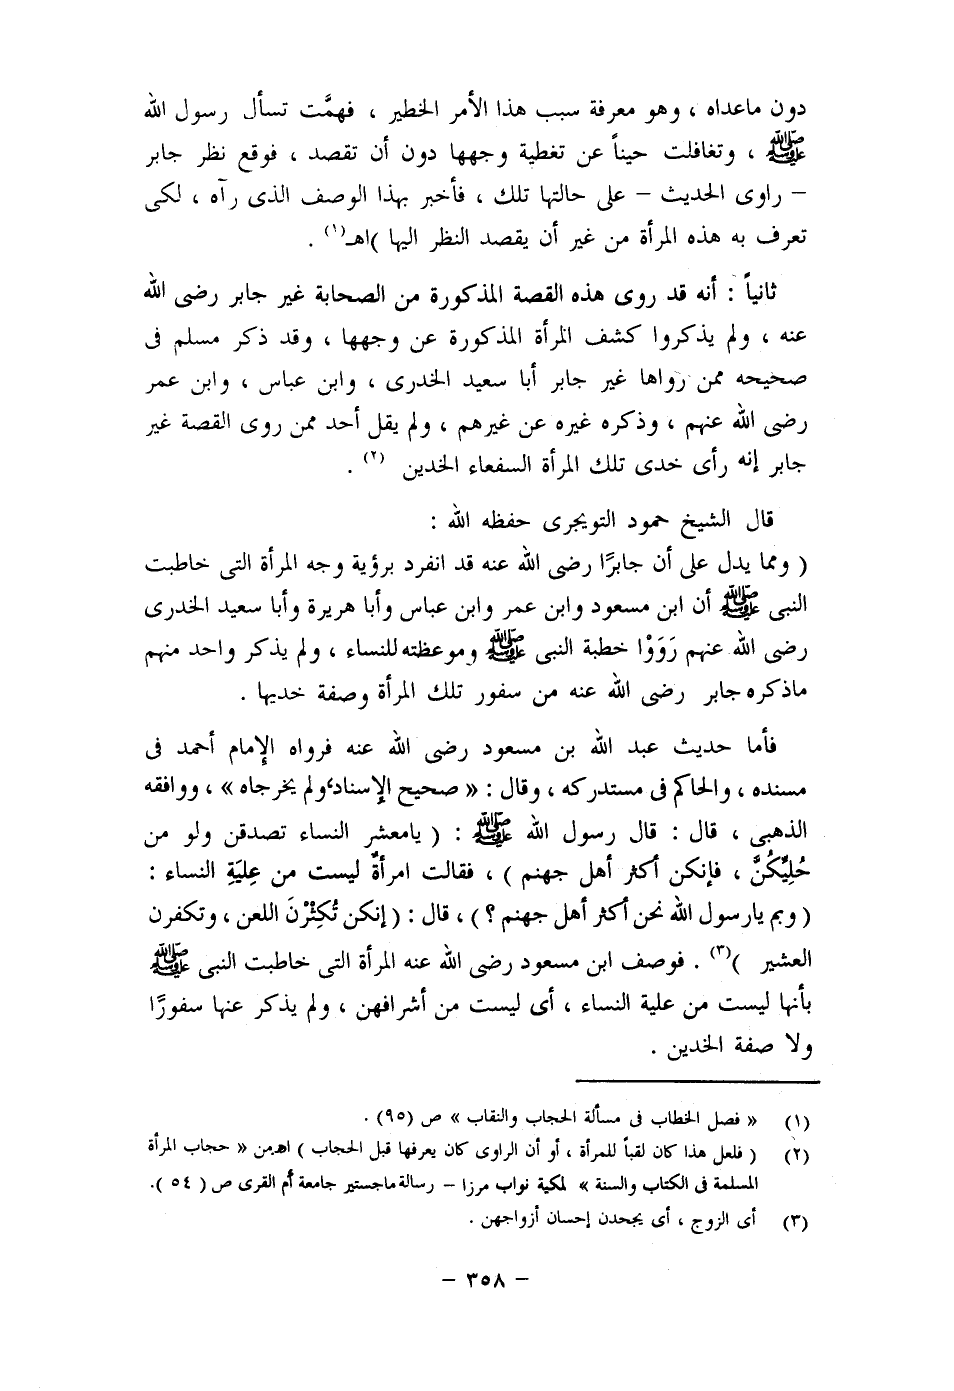 دون ماعداه ، وهو معرفة سبب هذا الأمر الخطير ، فهمَّت تسأل رسول الله
ﷺ ، وتغافلت حيناً عن تغطية وجهها دون أن تقصد ، فوقع نظر جابر
– راوى الحديث – على حالتها تلك ، فأخبر بهذا الوصف الذى رآه ، لكى
تعرف به هذه المرأة من غير أن يقصد النظر اليها )اهـ(١) .
ثانياً : أنه قد روى هذه القصة المذكورة من الصحابة غير جابر رضى الله
عنه ، ولم يذكروا كشف المرأة المذكورة عن وجهها ، وقد ذكر مسلم فى
صحيحه ممن رواها غير جابر أبا سعيد الخدرى ، وابن عباس ، وابن عمر
رضى الله عنهم ، وذكره غيره عن غيرهم ، ولم يقل أحد ممن روى القصة غير
جابر إنه رأى خدى تلك المرأة السفعاء الخدين (٢) .
قال الشيخ حمود التويجرى حفظه الله :
( ومما يدل على أن جابرًا رضى الله عنه قد انفرد برؤية وجه المرأة التى خاطبت
النبى ﷺ أن ابن مسعود وابن عمر وابن عباس وأبا هريرة وأبا سعيد الخدرى
رضى الله عنهم رَوَوْا خطبة النبى ﷺ وموعظته للنساء ، ولم يذكر واحد منهم
ماذكره جابر رضى الله عنه من سفور تلك المرأة وصفة خديها .
فأما حديث عبد الله بن مسعود رضى الله عنه فرواه الإمام أحمد فى
مسنده ، والحاكم فى مستدركه ، وقال : « صحيح الإسناد، ولم يخرجاه » ، ووافقه
الذهبى ، قال : قال رسول الله ﷺ : ( يامعشر النساء تصدقن ولو من
حُلِيِّكُنَّ ، فإنكن أكثر أهل جهنم ) ، فقالت امرأةٌ ليست من عِليَةِ النساء :
( وبم يارسول الله نحن أكثر أهل جهنم ؟ ) ، قال : ( إنكن تُكثِرْنَ اللعن ، وتكفرن
العشير )(٣) . فوصف ابن مسعود رضى الله عنه المرأة التى خاطبت النبى ﷺ
بأنها ليست من علية النساء ، أى ليست من أشرافهن ، ولم يذكر عنها سفورًا
ولا صفة الخدين .
(١) « فصل الخطاب فى مسألة الحجاب والنقاب » ص (٩٥) .
(٢) ( فلعل هذا كان لقباً للمرأة ، أو أن الراوى كان يعرفها قبل الحجاب ) اهـ من « حجاب المرأة
المسلمة فى الكتاب والسنة » لمكية نواب مرزا – رسالة ماجستير جامعة أم القرى ص ( ٥٤ ).
(٣) أى الزوج ، أى يجحدن إحسان أزواجهن .
– ٣٥٨ –